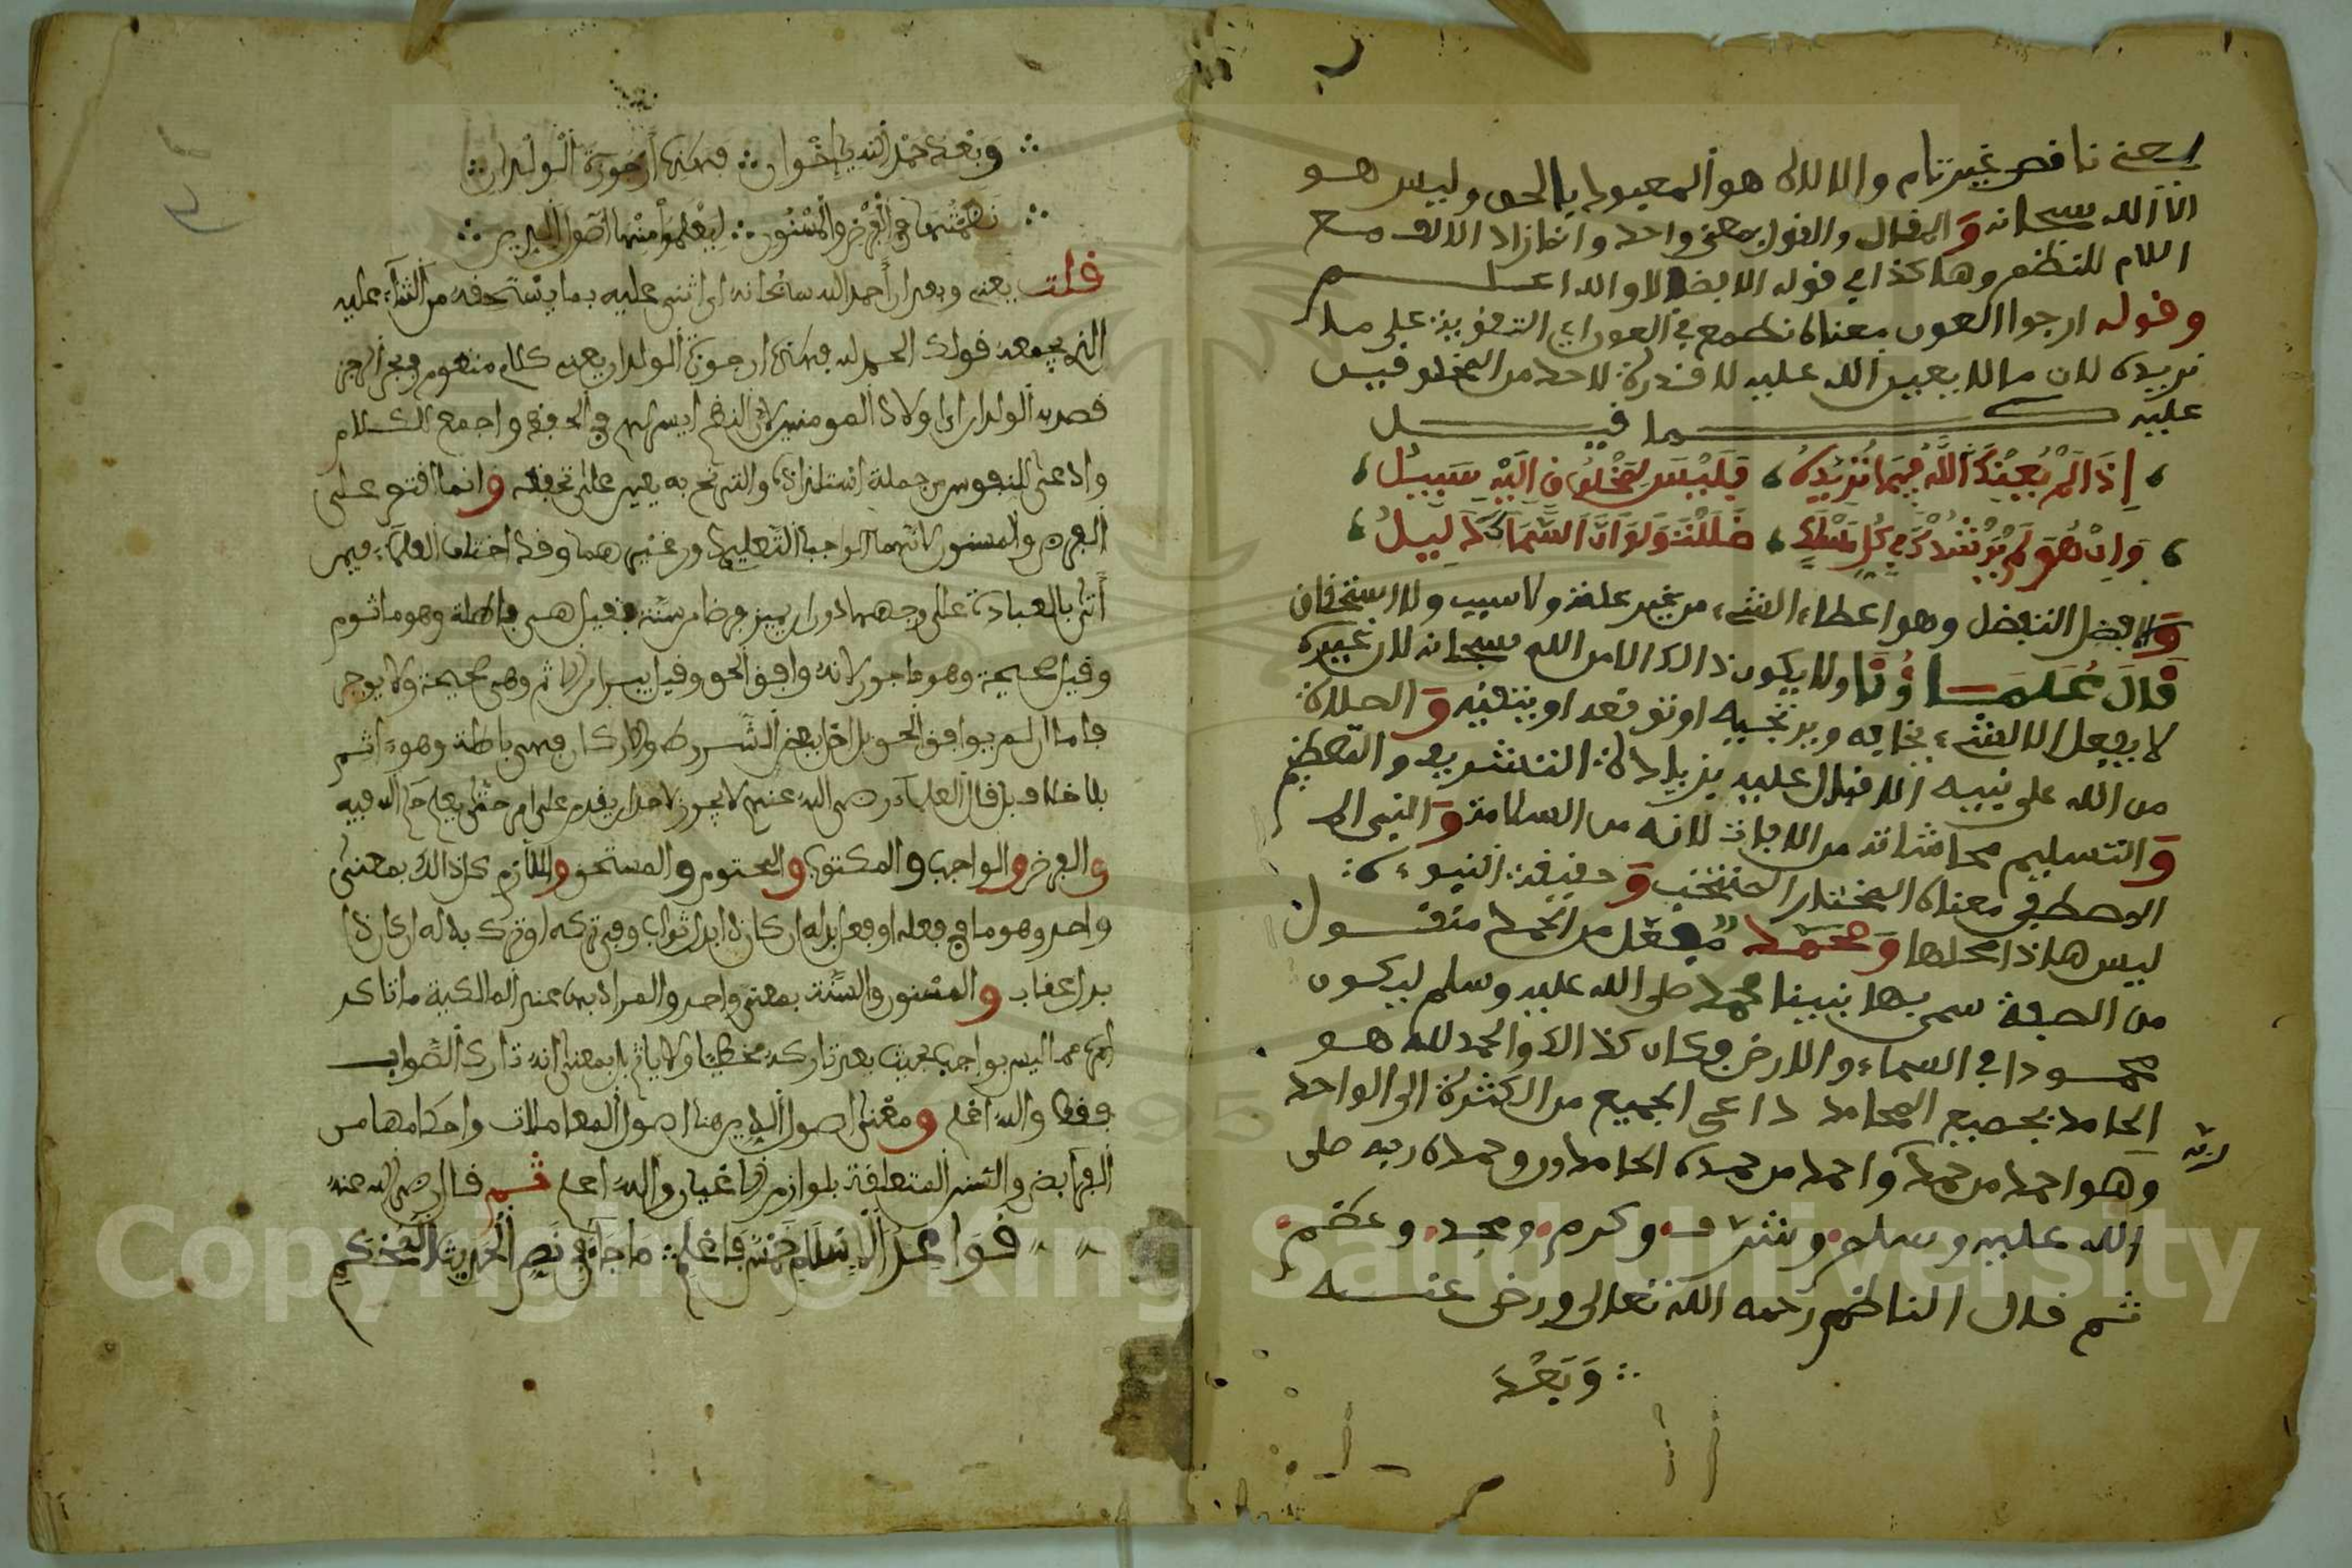 يعني ناقص غير تام والالاه هو المعبود بالحق وليس هو
الا الله سبحانه و القال والقول بمعنى واحد وانما زاد الالف مع
اللام للنظم وهاكذا في قوله الا بضلالا والله اعلم
وقوله ارجوا العون معناه نطمع في العون اي التقوية على ما
نريده لان ما لا يعين الله عليه لا قدرة لاحد من المخلوقين
عليه كما قيل
إذا لم يعنك الله فيما تريده فليس لمخلوق اليه سبيل
وإن هو لم يرشدك في كل مسلك ضللت ولو ان السماك دليل
والافضل التفضل وهو اعطاء الشيء من غير علة ولا سبب ولا استحقاق
قال علماؤنا ولا يكون ذالك الا من الله سبحانه لان غيره
لا يفعل الا لشيء يخافه ويرتجيه او توقعه او يتقيه و الصلاة
من الله على نبيه اللاقبال عليه بزيادة التشريف والتعظيم
و التسليم محاشاته من الافات لانه من السلامة و النبي ال
المصطفى معناه المختار المنتخب و حقيقة النبوءة
ليس هاذا محلها و محمد مفعل من الحمد منقول
من الصفة سمي بها نبينا محمد صلى الله عليه وسلم ليكون
محمودا في السماء والارض فكان كذالك والحمد لله هو
الحامد بجميع المحامد داعي الجميع من الكثرة الى الواحد
وهو احمد من حمد واحمد من حمده الحامدون وحمده ربه صلى
الله عليه وسلم وشرف وكرم ومجد وعظم
ثم قال الناظم رحمه الله تعالى ورضي عنه
وبعد
وبعد حمد الله يا إخوان فهذه أرجوزة الولدان
نظمتها في الفرض والمسنون ليعلموا منها أصول الدين
قلت يعني وبعد ان أحمد الله سبحانه اي اثني عليه بما يستحقه من الثناء عليه
الذي يجمعه قولك الحمد لله فهذه ارجوزة الولدان يعني كلام منظوم في بحر الرجز
قصد به الولدان اي اولاد المومنين لان النظم ايسر لهم في الحفظ واجمع للكلام
وادعى للنفوس من جملة استلذاذه والترنم به يعين على تحفظه وانما اقتصر على
الفرض والمسنون لانهما الواجبا التعليم دون غيرهما وقد اختلف العلماء فيمن
أتى بالعبادة على وجهها دون ان يميز فرضا من سنة فقيل هي باطلة وهو ماثوم
وقيل صحيحة وهو ماجور لانه وافق الحق وقيل يبرا من الاثم وهي صحيحة ولا يوجر
فاما ان لم يوافق الحق بل اخل ببعض الشروط والاركان فهي باطلة وهو ءاثم
بلا خلاف بل قال العلماء رضي الله عنهم لا يجوز لاحد ان يقدم على امر حتى يعلم حكم الله فيه
والفرض والواجب والمكتوب والمحتوم والمستحق واللازم كل ذالك بمعنى
واحد وهو ما في فعله او فعل بدله ان كان ذا بدل ثواب وفي تركه او ترك بدله ان كان ذا
بدل عقاب والمسنون والسنة بمعنى واحد والمراد بها عند المالكية ما تاكد
امره مما ليس بواجب بحيث يعد تاركه مخطئا ولا ياثم بل بمعنى انه تارك الصواب
فقط والله اعلم ومعنى اصول الدين هنا اصول المعاملات واحكامها من
الفرائض والسنن المتعلقة بلوازم الاعيان والله اعلم ثم قال رضي الله عنه
قواعد الإسلام خمس فاعلم ما جاء في نص الحديث المحكم